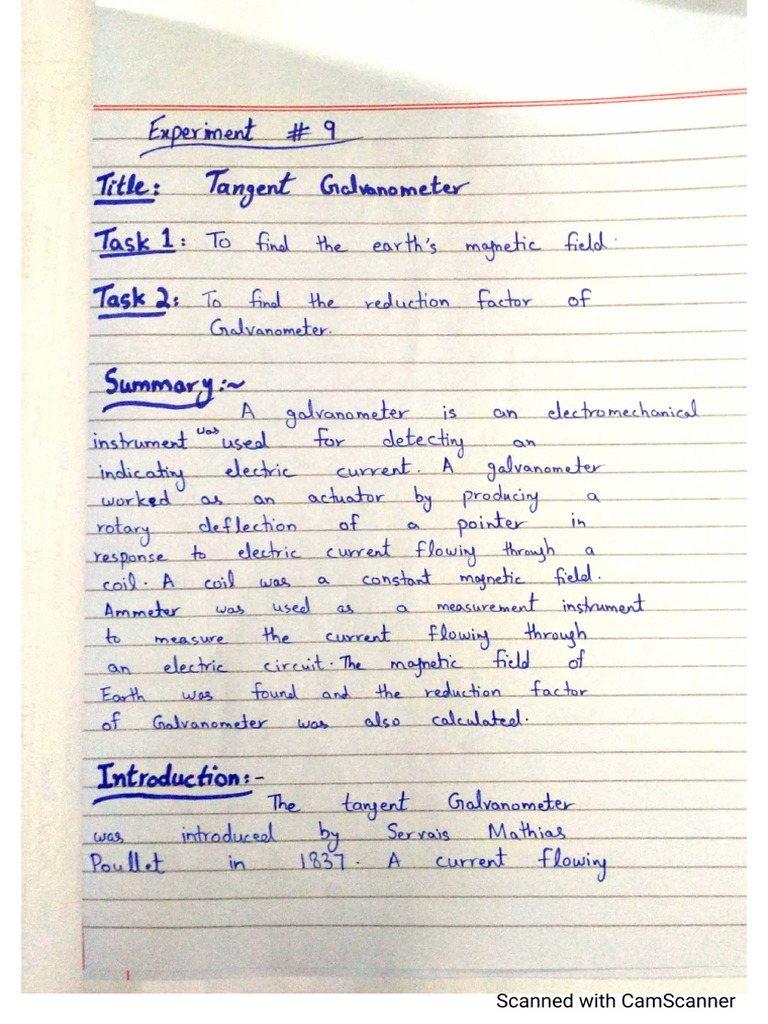 Experiment # 9
Title: Tangent Galvanometer
Task 1: To find the earth's magnetic field.
Task 2: To find the reduction factor of
Galvanometer.
Summary:~
A galvanometer is an electromechanical
instrument was used for detecting an
indicating electric current. A galvanometer
worked as an actuator by producing a
rotary deflection of a pointer in
response to electric current flowing through a
coil. A coil was a constant magnetic field.
Ammeter was used as a measurement instrument
to measure the current flowing through
an electric circuit. The magnetic field of
Earth was found and the reduction factor
of Galvanometer was also calculated.
Introduction:-
The tangent Galvanometer
was introduced by Servais Mathias
Poullet in 1837. A current flowing
Scanned with CamScanner